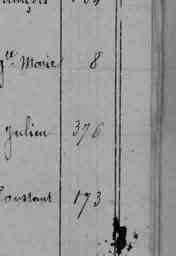 gte Marie 8
Julien 376
Toussant 173